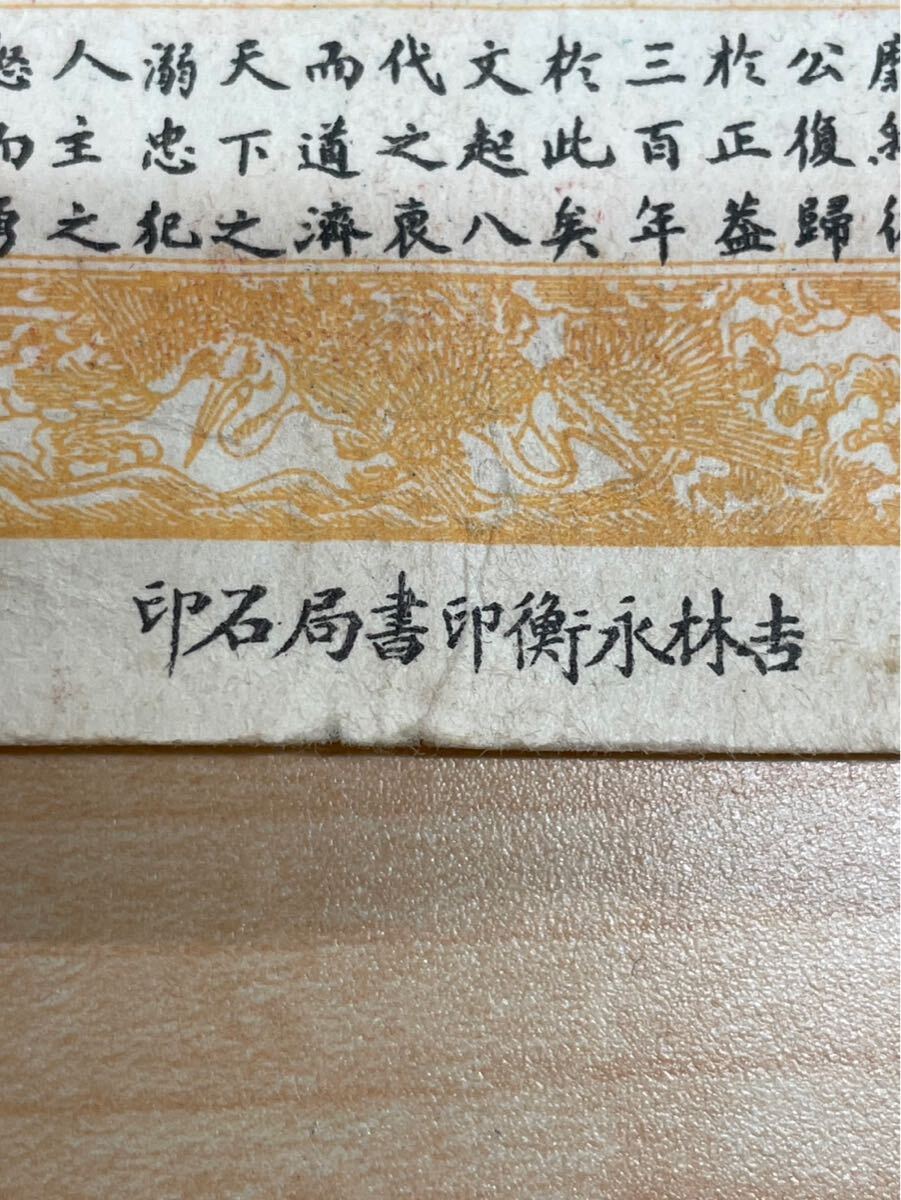 公復歸
於正盖
三百年
於此矣
文起八
代之衰
而道濟
天下之
溺忠犯
人主之
吉林永衡印書局石印